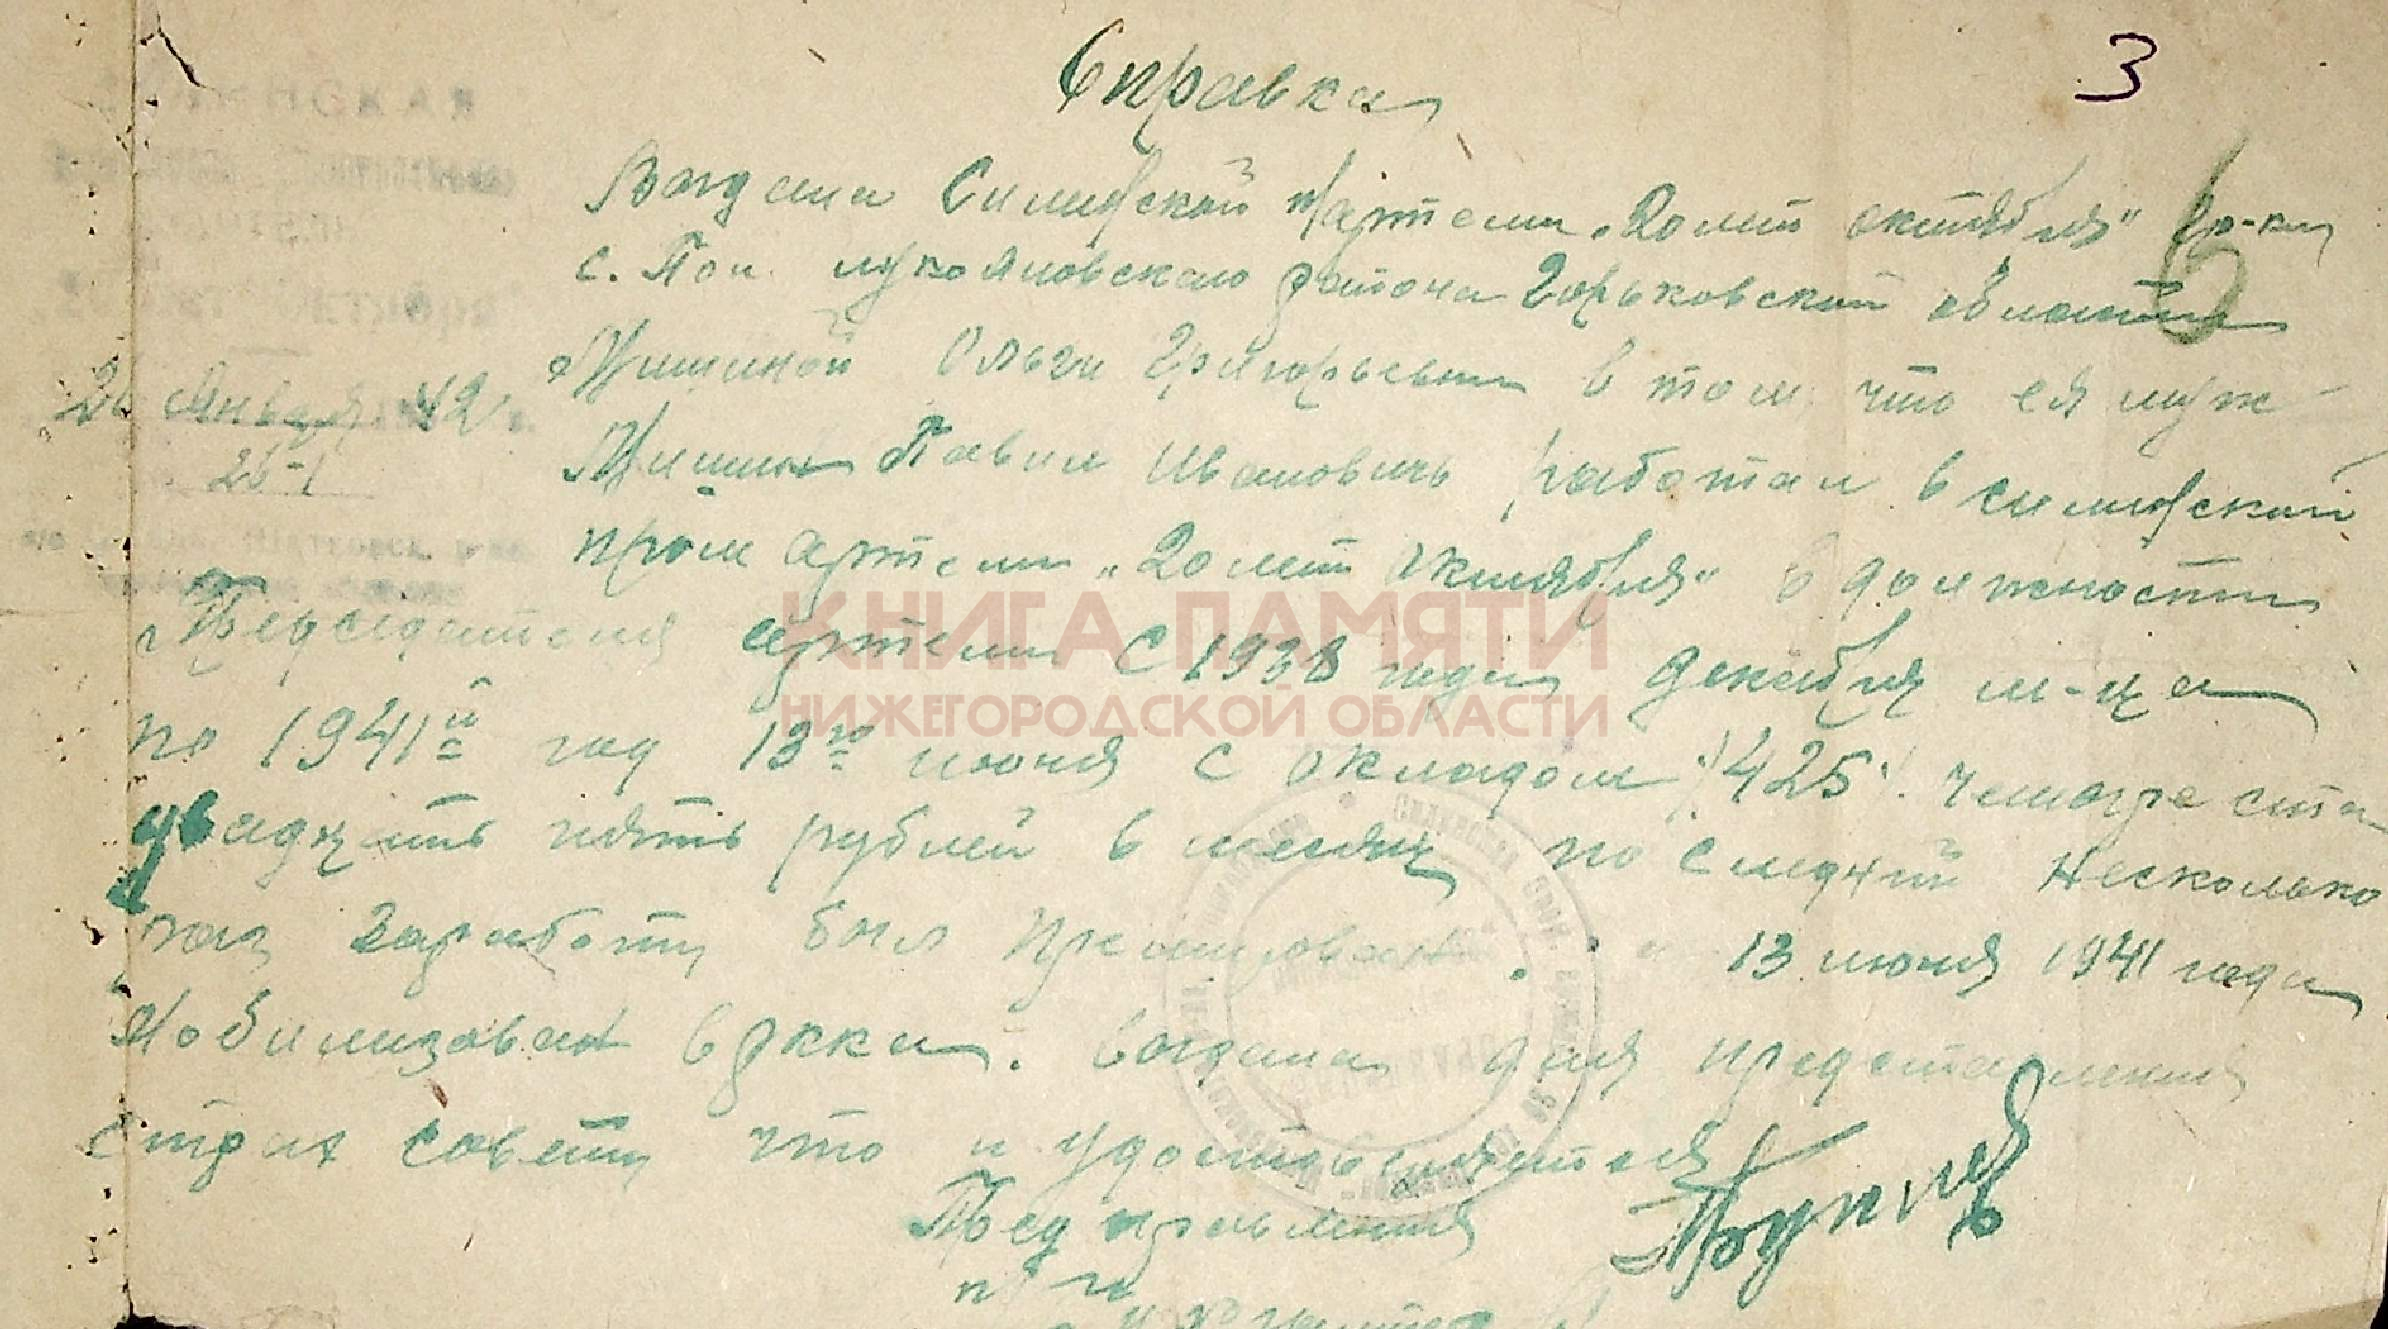 3
6
Справка
Выдана Силинской п/артели „20 лет октября" гр-ки
с. Пои Лукояновского района Горьковской области
Мишиной Ольги Григорьевны в том что ея муж
Мишин Павил Ивановичь работал в силинской
пром артели „20 лет октября" в должности
Председателя артели с 1938 года декабря м-ца
по 1941й год 13го июня с окладом /425/. четыре ста
двадцать пять рублей в месяц по следний несколько
раз за работу был премирован. и 13 июня 1941 года
мобилизован в ркка. выдана для представления
страх совету что и удостоверяется
Пред правления
26 Января 42 г.
26-1
КНИГА ПАМЯТИ
НИЖЕГОРОДСКОЙ ОБЛАСТИ